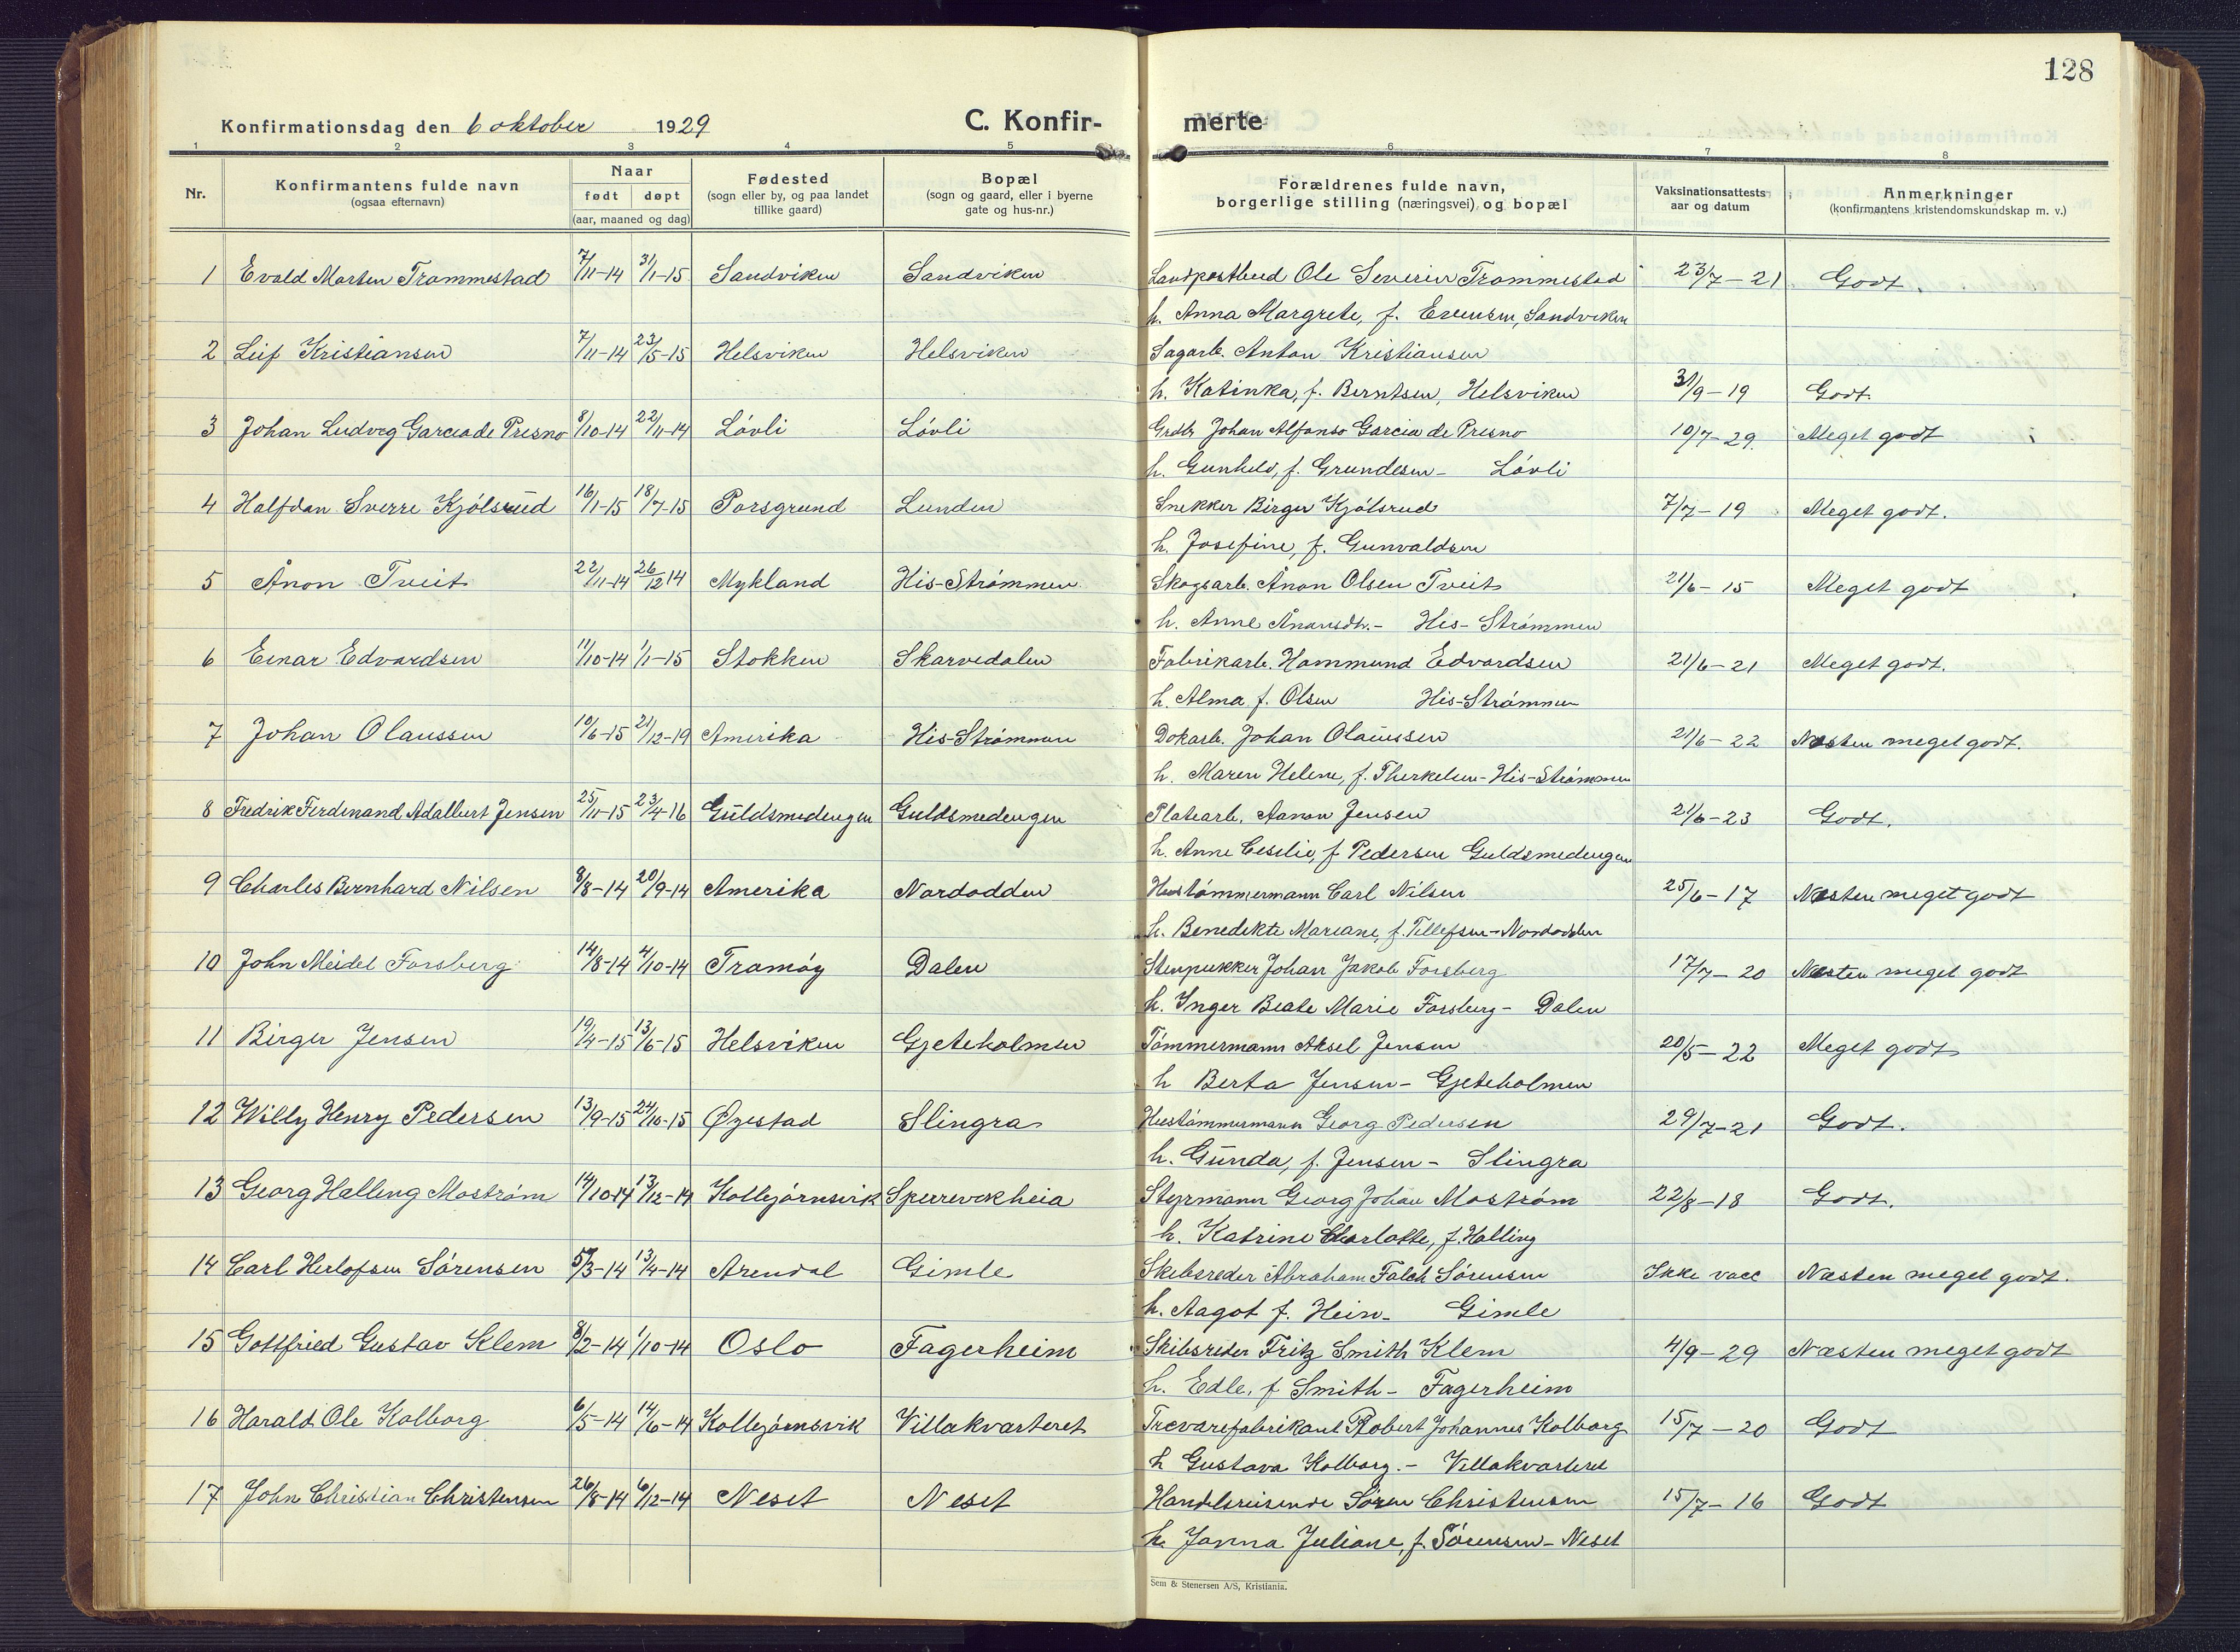 128
Konfirmationsdag den 6 oktober 1929 C. Konfir- merte
1 2 3 4 5 6 7 8
Nr. Konfirmantens fulde navn (ogsaa efternavn) Naar født døpt (aar, maaned og dag) Fødested (sogn eller by, og paa landet tillike gaard) Bopæl (sogn og gaard, eller i byerne gate og hus-nr.) Forældrenes fulde navn, borgerlige stilling (næringsvei) og bopæl Vaksinationsattests aar og datum Anmerkninger (konfirmantens kristendomskundskap m. v.)
1 Evald Marten Trommestad 7/11-14 31/1-15 Sandviken Sandviken Landpostbud Ole Severin Trommestad 23/7-21 Godt.
h. Anna Margrete, f. Evensen, Sandviken
2 Leif Kristiansen 7/11-14 23/5-15 Helsviken Helsviken Sagarb. Anton Kristiansen
h. Katinka, f. Berntsen, Helsviken 31/9-19 Godt.
3 Johan Ludvig Garcia de Presno 8/10-14 22/11-14 Løvli Løvli Grdbr Johan Alfonso Garcia de Presno 10/7-29. Meget godt
h. Gunhild, f. Grundesen- Løvli
4 Halfdan Sverre Kjølsrud 16/1-15 18/7-15 Porsgrund Lunden Snekker Birger Kjølsrud 7/7-19 Meget godt.
h. Josefine, f. Gunvaldsen
5 Ånon Tveit 22/11-14 26/12 14 Mykland His-Strømmen Skogsarb. Ånon Olsen Tveit 21/6-15 Meget godt
h. Anne Ånonsdtr.- His-Strømmen
6 Einar Edvardsen 11/10-14 1/1-15 Stokken Skarvedalen Fabrikarb. Hammund Edvardsen 21/6-21 Meget godt.
h. Alma f. Olsen His-Strømmen
7 Johan Olaussen 10/6-15 21/12-19 Amerika His-Strømmen Dokarb. Johan Olaussen 21/6-22 Næsten meget godt.
h. Maren Helene, f. Therkelsen-His-Strømmen
8 Fredrik Ferdinand Adalbert Jensen 25/11-15 23/4-16 Guldsmedengen Guldsmedengen Platearb. Aanon Jensen 21/6-23 Godt.
h. Anne Cecilie, f Pedersen Guldsmedengen
9 Charles Bernhard Nilsen 8/8-14 20/9-14 Amerika Nordodden Hustømmermann Carl Nilsen 25/6-17 Næsten meget godt
h. Benedikte Mariane, f. Tellefsen-Nordodden
10 John Meidel Forsberg 14/8-14 4/10-14 Tromøy Dalen Stenpukker Johan Jakob Forsberg 17/7-20 Næsten meget godt
h. Inger Beate Marie Forsberg- Dalen
11 Birger Jensen 19/4-15 13/6-15 Helsviken Gjeteholmen Tømmermann Aksel Jensen 20/5-22 Meget godt
h Berta Jensen- Gjeteholmen
12 Willy Henry Pedersen 13/9-15 24/10-15 Øyestad Slingra Hustømmermann Georg Pedersen 29/7-21 Godt.
h. Gunda, f. Jensen- Slingra
13 Georg Halling Mostrøm 14/10-14 13/12-14 Kolbjørnsvik Spurevikheia Styrmann Georg Johan Mostrøm 22/8-18 Godt.
h. Katrine Charlotte, f. Halling
14 Carl Herlofsen Sørensen 5/3-14 13/4-14 Arendal Gimle Skibsreder Abraham Falch Sørensen Ikke vacc Næsten meget godt.
h. Aagot f. Hein- Gimle
15 Gottfried Gustav Klem 8/2-14 1/10-14 Oslo Fagerheim Skibsreder Fritz Smith Klem 4/9-29 Næsten meget godt
h. Edle, f Smith- Fagerheim
16 Harald Ole Kolborg 6/5-14 14/6-14 Kolbjørnsvik Villakvarteret Trevarefabrikant Robert Johannes Kolborg 15/7-20 Godt
h Gustava Kolborg.- Villakvarteret
17 John Christian Christensen 26/8-14 6/12-14 Neset Neset Handelsreisende Søren Christensen 15/7-16 Godt
h. Janna Juliane, f. Sørensen-Neset
Sem & Stenersen A/S, Kristiania.